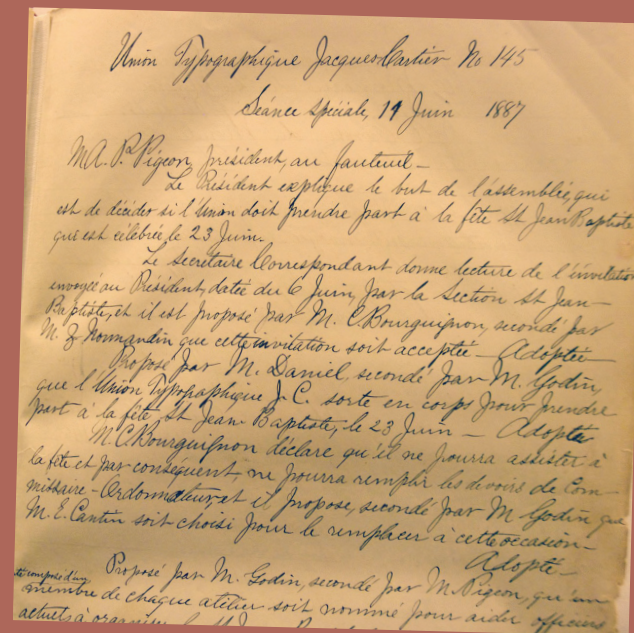 Union Typographique Jacques-Cartier No 145
Séance spéciale, 11 Juin 1887
M A. P. Pigeon, président, au fauteuil —
Le Président explique le but de l'assemblée, qui
est de décider si l'Union doit prendre part à la fête St Jean Baptiste
qui est célébrée le 23 Juin.
Le Secrétaire Correspondant donne lecture de l'invitation
envoyée au Président, datée du 6 Juin, par la Section St Jean-
Baptiste, et il est proposé par M. C Bourguignon, secondé par
M. Z Normandin que cette invitation soit acceptée — Adoptée —
Proposé par M. Daniel, secondé par M. Godin,
que l'Union Typographique J. C. sorte en corps pour prendre
part à la fête St Jean-Baptiste, le 23 Juin — Adoptée
M. C Bourguignon déclare qu'il ne pourra assister à
la fête et par conséquent, ne pourra remplir les devoirs de Com-
missaire-Ordonnateur, et il propose, secondé par M Godin que
M. E. Cantin soit choisi pour le remplacer à cette occasion —
Adopté —
Proposé par M. Godin, secondé par M. Pigeon, qu'un
té composé d'un
membre de chaque atelier soit nommé pour aider officiers
actuels à